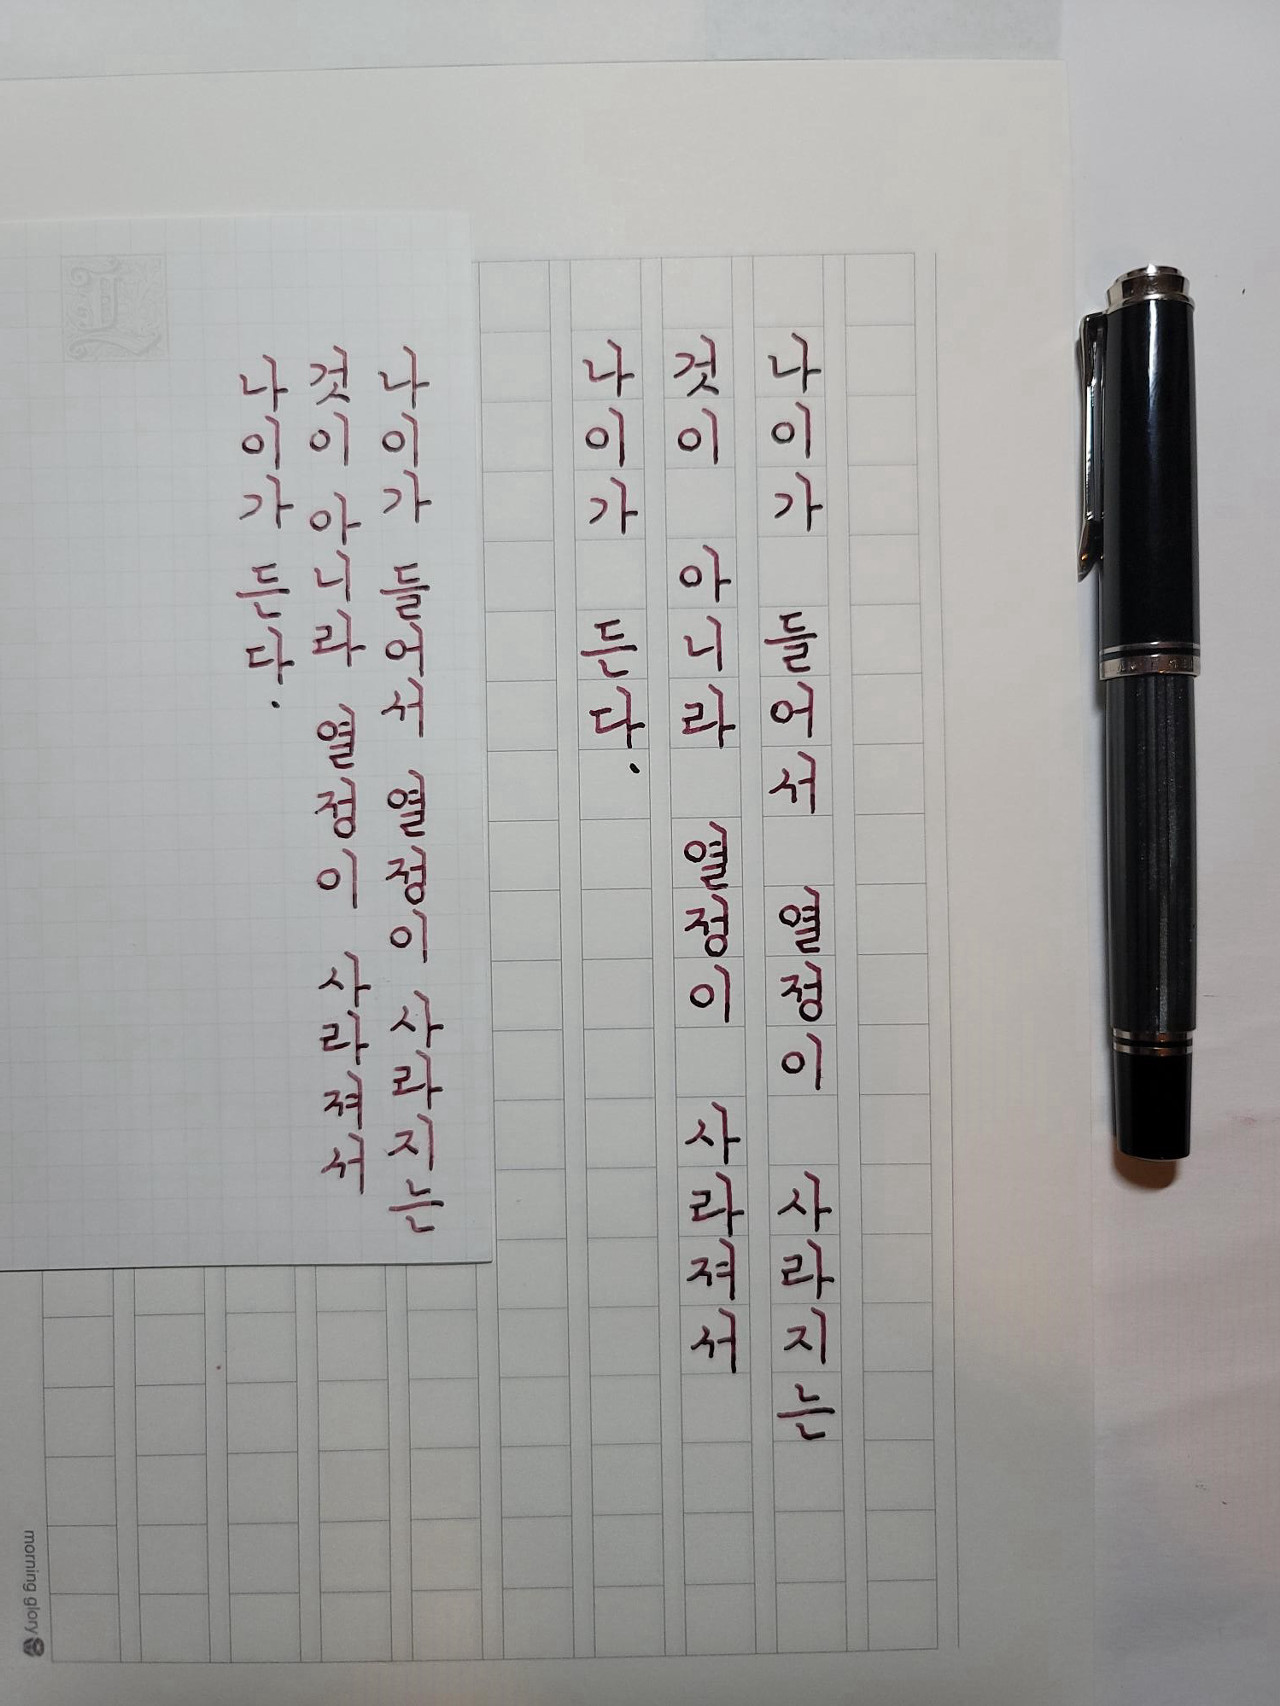 나이가 들어서 열정이 사라지는
것이 아니라 열정이 사라져서
나이가 든다.
나이가 들어서 열정이 사라지는
것이 아니라 열정이 사라져서
나이가 든다.
morning glory